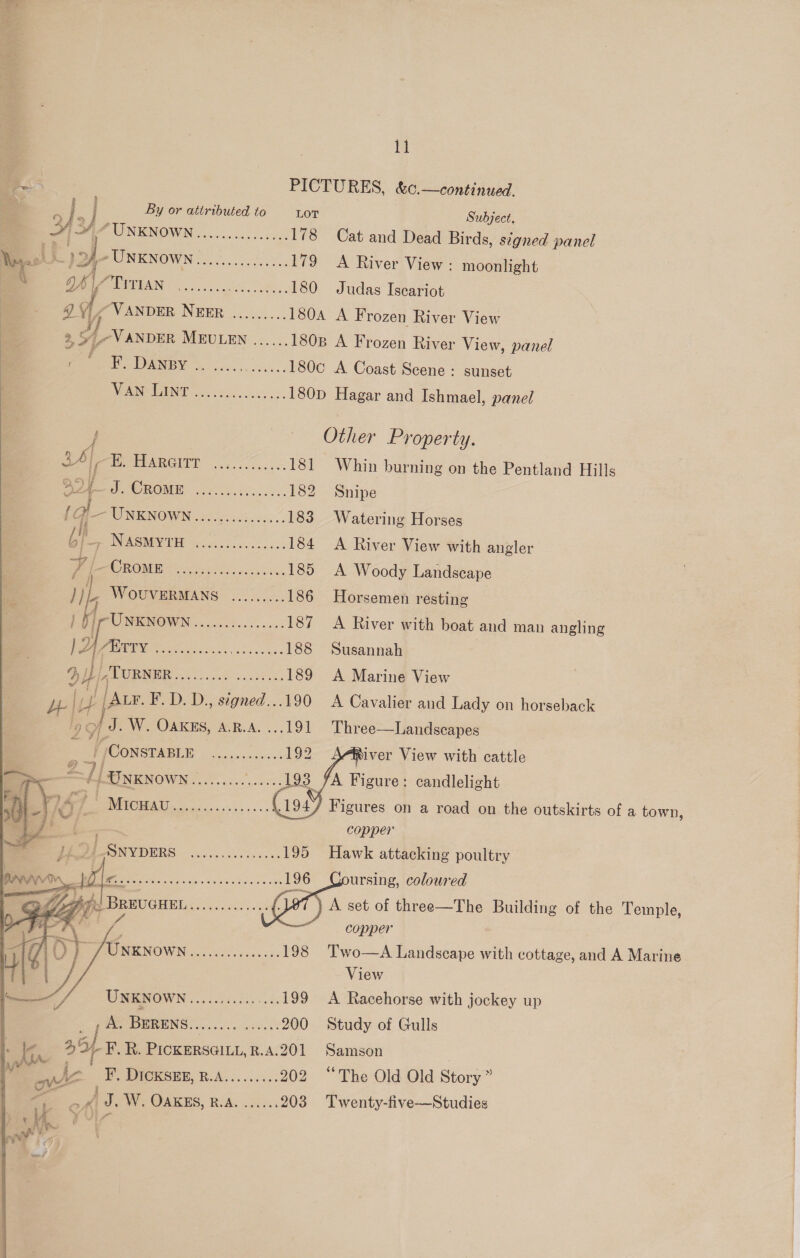 11
PICTURES, &c.—continued.
By or attributed to LOT Subject.
UNKNOWN ............... 178 Cat and Dead Birds, signed panel
UNKNOWN ............... 179 A River View : moonlight
TITIAN ............... 180 Judas Iscariot
VANDER NEER ......... 180A A Frozen River View
VANDER MEULEN ...... 180B A Frozen River View, panel
F. DANBY ............... 180C A Coast Scene : sunset
VAN LINT ............... 180D Hagar and Ishmael, panel
Other Property.
E. HARGITT ............ 181 Whin burning on the Pentland Hills
J. CROME ............... 182 Snipe
UNKNOWN ............... 183 Watering Horses
NASMYTH ............... 184 A River View with angler
CROME ............... 185 A Woody Landscape
WOUVERMANS ......... 186 Horsemen resting
UNKNOWN ............... 187 A River with boat and man angling
ETTY ............... 188 Susannah
TURNER ............... 189 A Marine View
ALF. F. D. D., signed...190 A Cavalier and Lady on horseback
J. W. OAKES, A.R.A. ...191 Three—Landscapes
CONSTABLE ............ 192 A River View with cattle
UNKNOWN ............... 193 A Figure : candlelight
MICHAU ............... 194 Figures on a road on the outskirts of a town,
copper
SNYDERS ............... 195 Hawk attacking poultry
............... 196 Coursing, coloured
BREUGHEL ............ 197 A set of three—The Building of the Temple,
copper
UNKNOWN ............... 198 Two—A Landscape with cottage, and A Marine
View
UNKNOWN ............... 199 A Racehorse with jockey up
A. BERENS ............... 200 Study of Gulls
F. R. PICKERSGILL, R.A. 201 Samson
F. DICKSEE, R.A. ......... 202 "The Old Old Story"
J. W. OAKES, R.A. ...... 203 Twenty-five—Studies